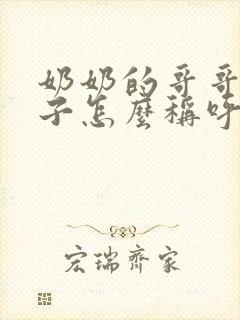 奶奶的哥哥
子怎麼稱呼
宏瑞齊家